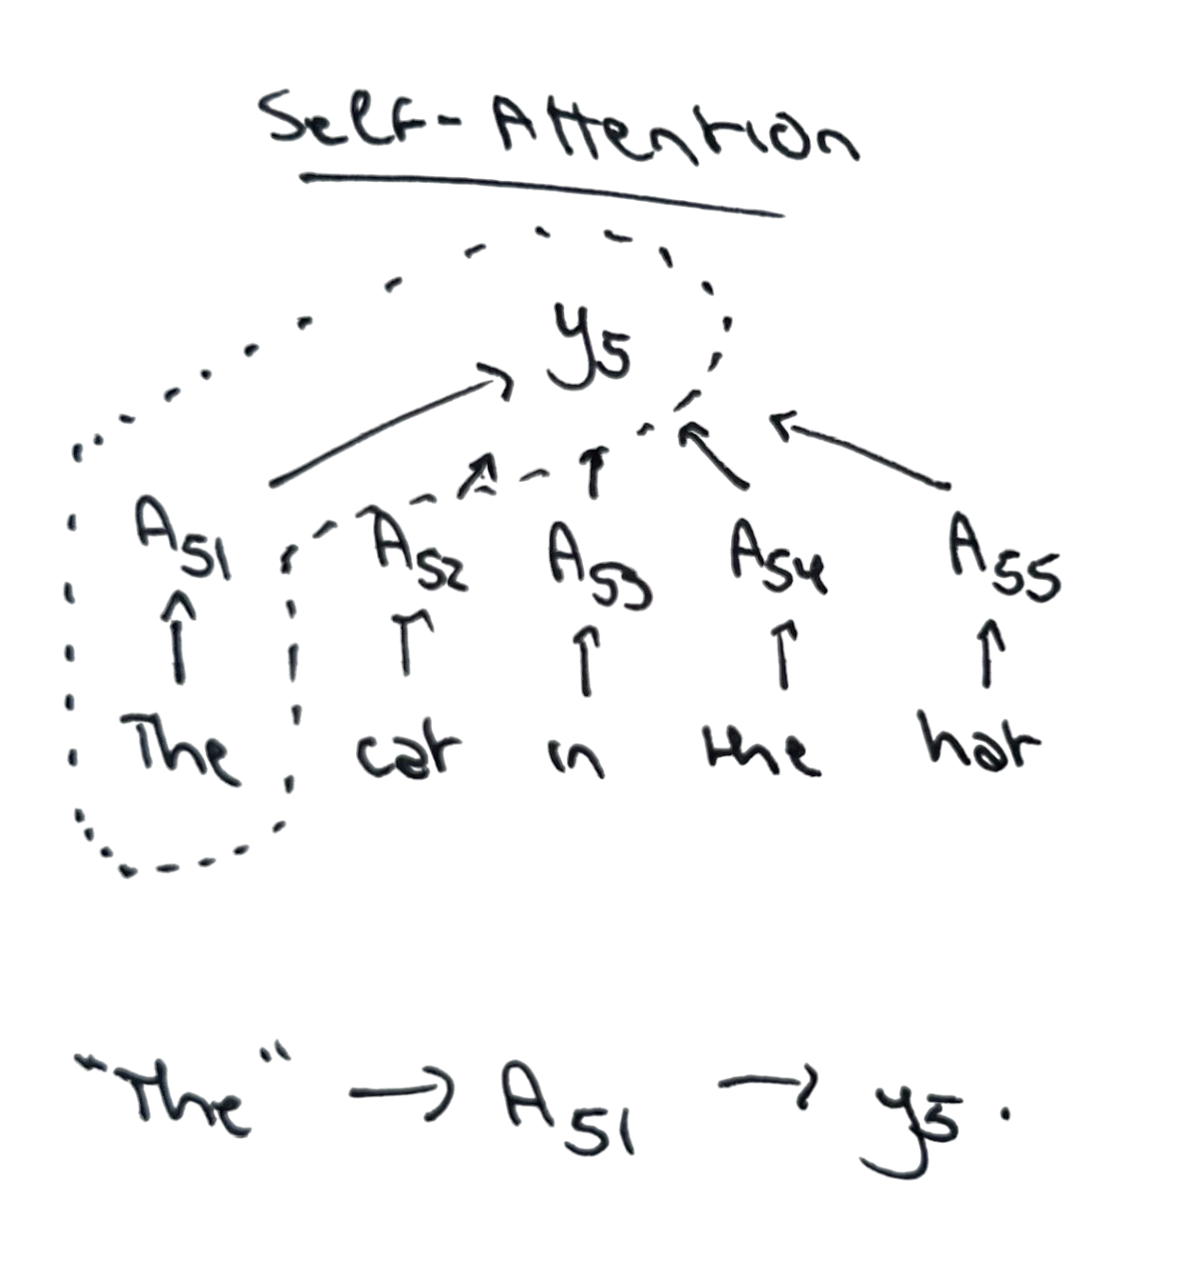 Self-Attention
y5
A51 A52 A53 A54 A55
The cat in the hat
"The" → A51 → y5.